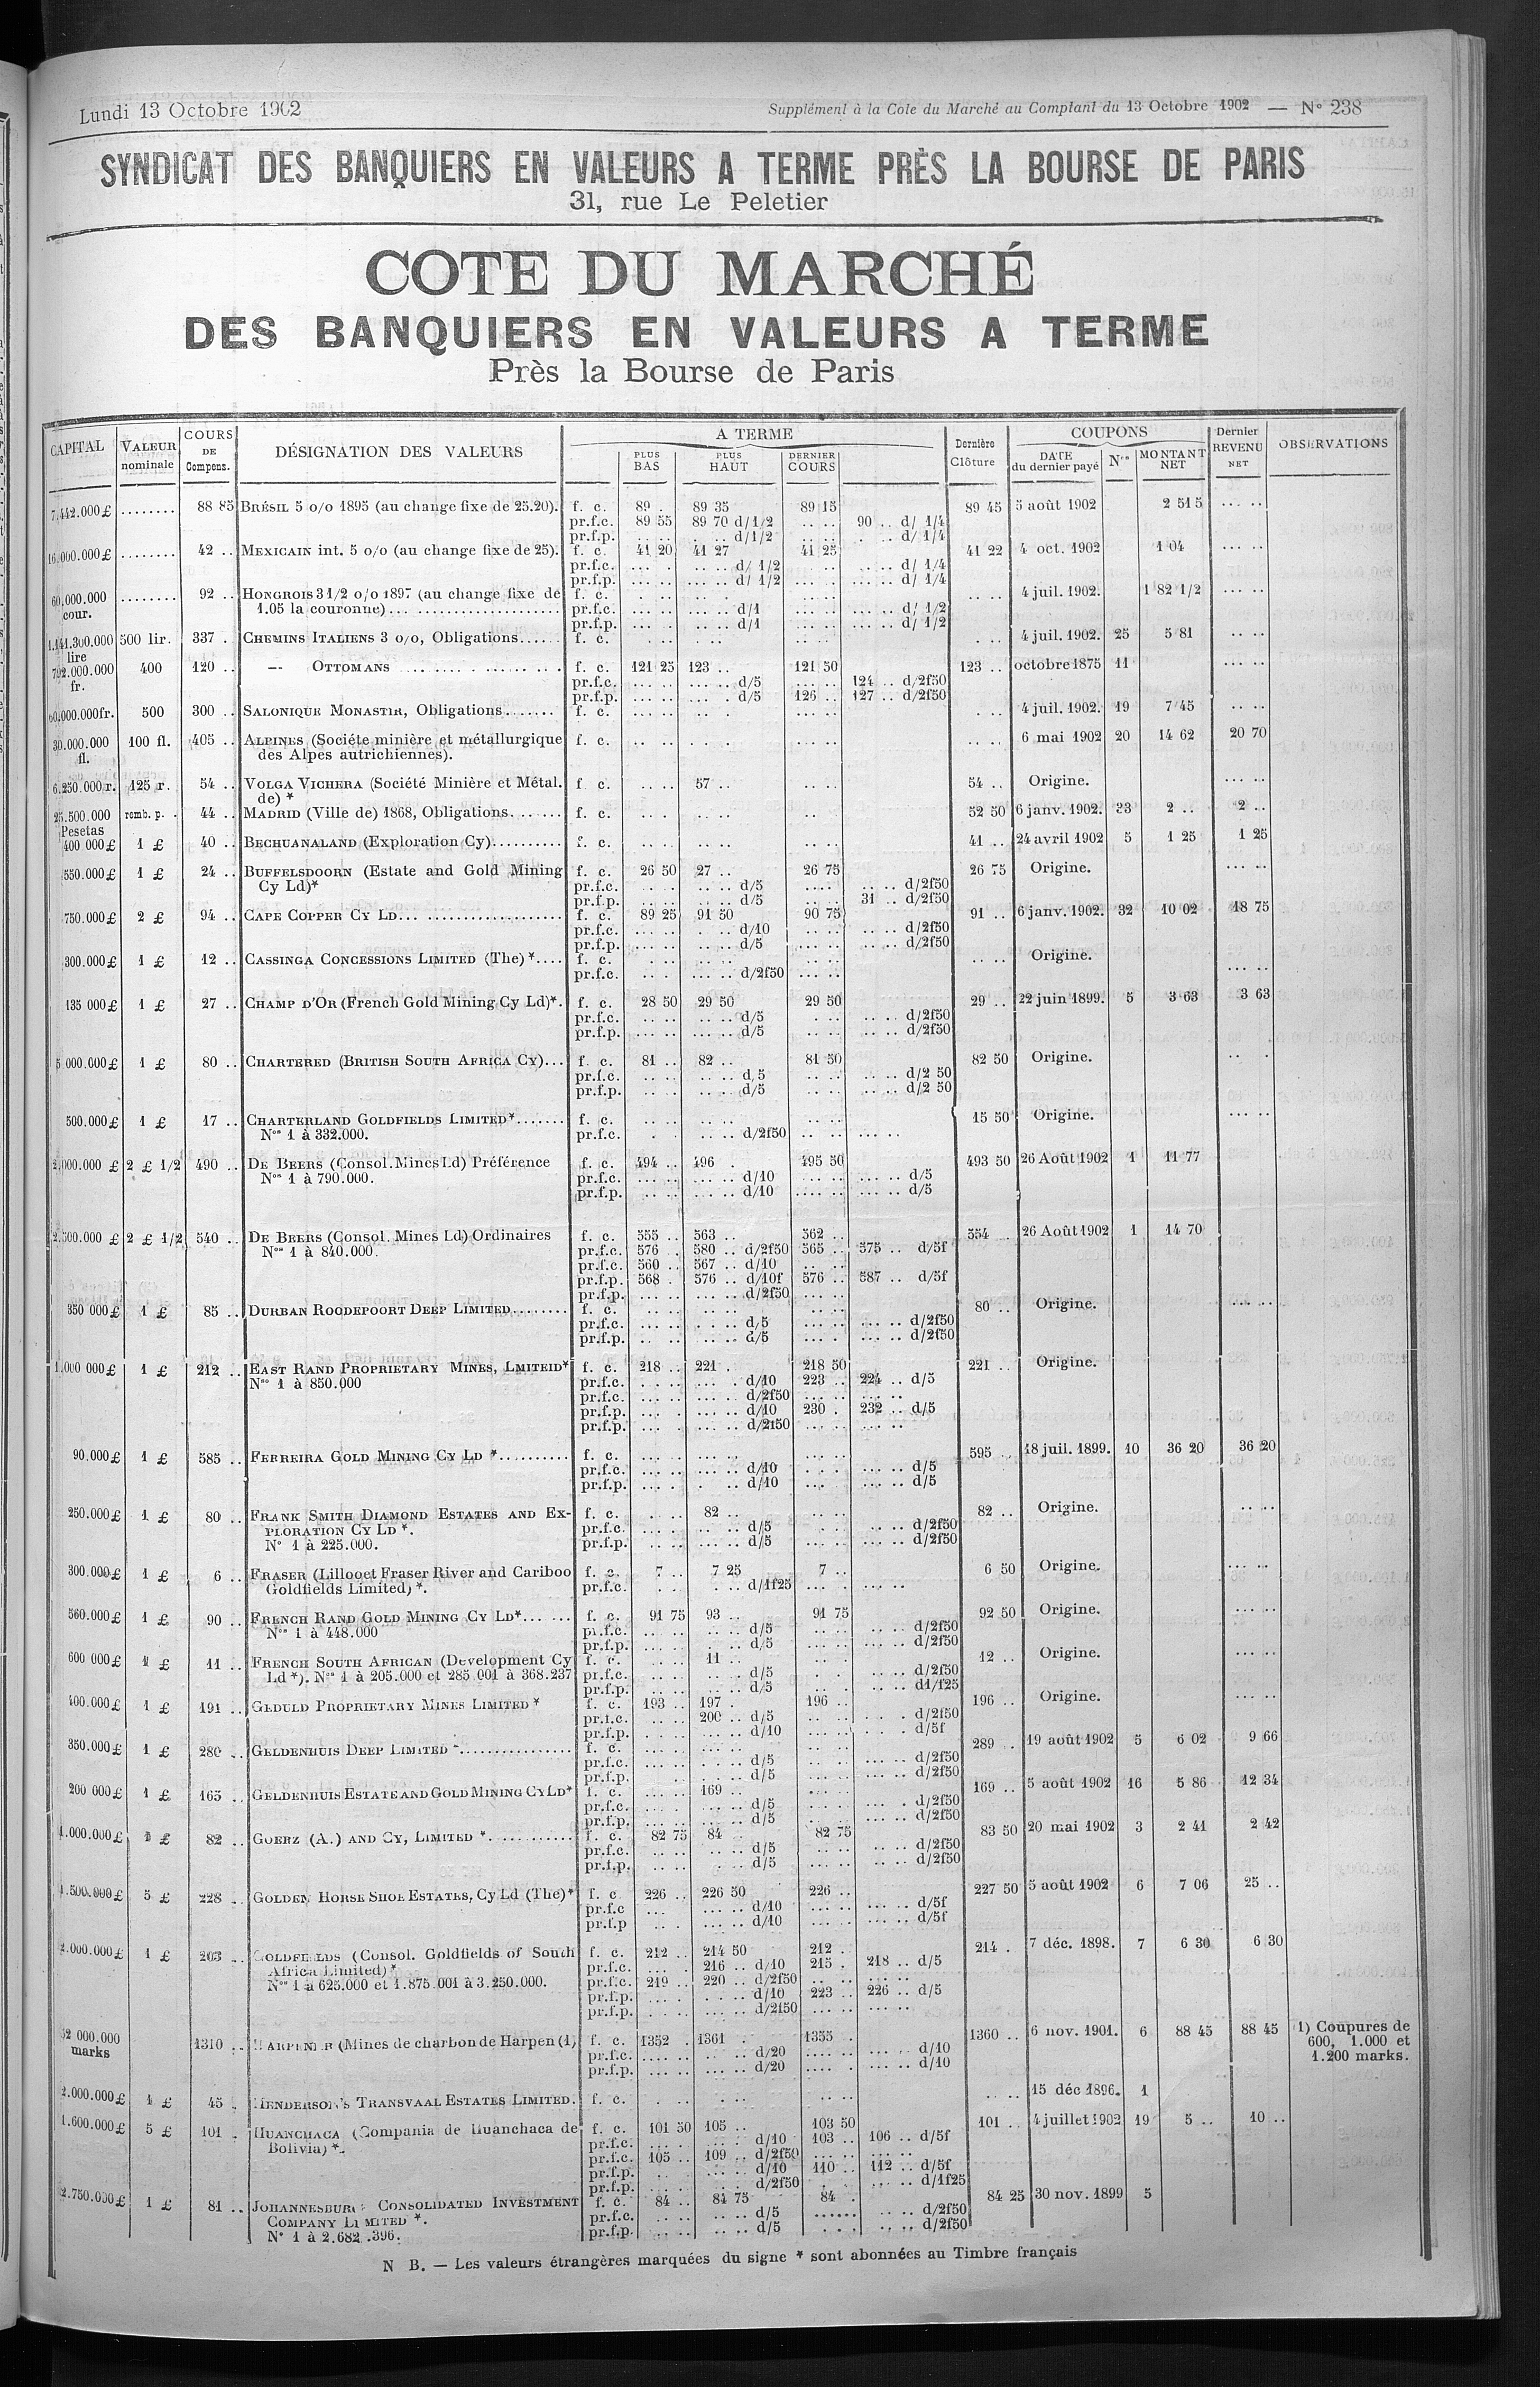 Lundi 13 Octobre 1902
Supplément à la Cote du Marché au Comptant du 13 Octobre 1902 — N° 238
SYNDICAT DES BANQUIERS EN VALEURS A TERME PRÈS LA BOURSE DE PARIS
31, rue Le Peletier
COTE DU MARCHÉ
DES BANQUIERS EN VALEURS A TERME
Près la Bourse de Paris
CAPITAL VALEUR nominale COURS DE Compens. DÉSIGNATION DES VALEURS A TERME PLUS BAS PLUS HAUT DERNIER COURS Dernière Clôture COUPONS DATE du dernier payé Nos MONTANT NET Dernier REVENU NET OBSERVATIONS
7.442.000£ ........ 88 85 BRÉSIL 5 o/o 1895 (au change fixe de 25.20). f. c. 89 . 89 35 89 15 89 45 5 août 1902 2 51 5 ... ..
pr.f.c. 89 55 89 70 d/1/2 .. .. 90 .. d/ 1/4
pr.f.p. d/1/2 d/ 1/4
16.000.000£ ........ 42 .. MEXICAIN int. 5 o/o (au change fixe de 25). f. c. 41 20 41 27 41 25 41 22 4 oct. 1902 1 04 ... ..
pr.f.c. d/ 1/2 d/ 1/4
pr.f.p. d/ 1/2 d/ 1/4
60.000.000 cour. ........ 92 .. HONGROIS 3 1/2 o/o 1897 (au change fixe de f. c. 4 juil. 1902. 1 82 1/2 ... ..
1.05 la couronne)... pr.f.c. d/1 d/ 1/2
pr.f.p. d/1 d/ 1/2
1.141.300.000 lire 500 lir. 337 . CHEMINS ITALIENS 3 o/o, Obligations...... f. c. 4 juil. 1902. 25 5 81 .. ..
792.000.000 fr. 400 120 .. — OTTOMANS f. c. 121 25 123 .. 121 50 123 .. octobre 1875 11 ... ..
pr.f.c. d/5 124 .. d/2f50
pr.f.p. d/5 126 .. 127 .. d/2f50
60.000.000fr. 500 300 .. SALONIQUE MONASTIR, Obligations....... f. c. 4 juil. 1902. 19 7 45 .. ..
30.000.000 fl. 100 fl. 405 .. ALPINES (Sociéte minière et métallurgique f. c. 6 mai 1902 20 14 62 20 70
des Alpes autrichiennes).
6.250.000 r. 125 r. 54 .. VOLGA VICHERA (Société Minière et Métal. f. c. 57 .. 54 .. Origine. ... ..
de) *
25.500.000 Pesetas remb. p. 44 .. MADRID (Ville de) 1868, Obligations....... f. c. 52 50 6 janv. 1902. 33 2 .. 2 ..
400 000£ 1 £ 40 .. BECHUANALAND (Exploration Cy).......... f. c. 41 .. 24 avril 1902 5 1 25 1 25
550.000£ 1 £ 24 .. BUFFELSDOORN (Estate and Gold Mining f. c. 26 50 27 .. 26 75 26 75 Origine. ... ..
Cy Ld)* pr.f.c. d/5 d/2f50
pr.f.p. d/5 31 .. d/2f50
750.000£ 2 £ 94 .. CAPE COPPER CY LD... f. c. 89 25 91 50 90 75 91 .. 6 janv. 1902. 32 10 02 18 75
pr.f.c. d/10 d/2f50
pr.f.p. d/5 d/2f50
300.000£ 1 £ 12 .. CASSINGA CONCESSIONS LIMITED (The) *.... f. c. Origine.
pr.f.c. d/2f50 ... ..
135 000£ 1 £ 27 .. CHAMP D'OR (French Gold Mining Cy Ld)*. f. c. 28 50 29 50 29 50 29 .. 22 juin 1899. 5 3 63 3 63
pr.f.c. d/5 d/2f50
pr.f.p. d/5 d/2f50
5 000.000£ 1 £ 80 .. CHARTERED (BRITISH SOUTH AFRICA CY)... f. c. 81 .. 82 .. 81 50 82 50 Origine.
pr.f.c. d, 5 d/2 50
pr.f.p. d/5 d/2 50
500.000£ 1 £ 17 .. CHARTERLAND GOLDFIELDS LIMITED*....... f. c. 15 50 Origine. ... ..
Nos 1 à 332.000. pr.f.c. d/2f50
2.000.000 £ 2 £ 1/2 490 .. DE BEERS (Consol. Mines Ld) Préférence f. c. 494 .. 496 . 495 50 493 50 26 Août 1902 1 11 77
Nos 1 à 790.000. pr.f.c. d/10 d/5
pr.f.p. d/10 d/5
2.500.000 £ 2 £ 1/2 540 .. DE BEERS (Consol. Mines Ld) Ordinaires f. c. 555 .. 563 .. 562 .. 554 .. 26 Août 1902 1 14 70
Nos 1 à 840.000. pr.f.c. 576 . 580 .. d/2f50 565 .. 575 .. d/5f
pr.f.c. 560 .. 567 .. d/10
pr.f.p. 568 . 576 .. d/10f 576 .. 587 .. d/5f
pr.f.p. d/2f50
350 000£ 1 £ 85 .. DURBAN ROODEPOORT DEEP LIMITED........ f. c. 80 .. Origine. ... ..
pr.f.c. d/5 d/2f50
pr.f.p. d/5 d/2f50
1.000 000£ 1 £ 212 .. EAST RAND PROPRIETARY MINES, LMITEID* f. c. 218 .. 221 . 218 50 221 .. Origine.
Nos 1 à 850.000 pr.f.c. d/10 223 .. 224 .. d/5
pr.f.c. d/2f50
pr.f.p. d/10 230 . 232 .. d/5
pr.f.p. d/2f50
90.000£ 1 £ 585 .. FERREIRA GOLD MINING CY LD *.......... f. c. 595 .. 18 juil. 1899. 10 36 20 36 20
pr.f.c. d/10 d/5
pr.f.p. d/10 d/5
250.000£ 1 £ 80 .. FRANK SMITH DIAMOND ESTATES AND EX- f. c. 82 .. 82 .. Origine. .. ..
PLORATION CY LD *. pr.f.c. d/5 d/2f50
N° 1 à 225.000. pr.f.p. d/5 d/2f50
300.000£ 1 £ 6 .. FRASER (Lillooet Fraser River and Cariboo f. c. 7 .. 7 25 7 .. 6 50 Origine. ... ..
Goldfields Limited) *. pr.f.c. d/1f25
560.000£ 1 £ 90 .. FRENCH RAND GOLD MINING CY LD*... f. c. 91 75 93 .. 91 75 92 50 Origine. ... ..
Nos 1 à 448.000 pr.f.c. d/5 d/2f50
pr.f.p. d/5 d/2f50
600 000£ 1 £ 11 .. FRENCH SOUTH AFRICAN (Development Cy f. c. 11 .. 12 .. Origine. ... ..
Ld *). Nos 1 à 205.000 et 285.001 à 368.237 pr.f.c. d/5 d/2f50
pr.f.p. d/5 d1/f25
400.000£ 1 £ 191 .. GEDULD PROPRIETARY MINES LIMITED * f. c. 193 .. 197 . 196 .. 196 .. Origine. ... ..
pr.f.c. 200 .. d/5 d/2f50
pr.f.p. d/10 d/5f
350.000£ 1 £ 280 .. GELDENHUIS DEEP LIMITED f. c. 289 . 19 août 1902 5 6 02 9 66
pr.f.c. d/5 d/2f50
pr.f.p. d/5 d/2f50
200 000£ 1 £ 165 .. GELDENHUIS ESTATE AND GOLD MINING CY LD* f. c. 169 .. 169 .. 5 août 1902 16 5 86 12 34
pr.f.c. d/5 d/2f50
pr.f.p. d/5 d/2f50
1.000.000£ £ 82 .. GOERZ (A.) AND CY, LIMITED * f. c. 82 75 84 82 75 83 50 20 mai 1902 3 2 41 2 42
pr.f.c. d/5 d/2f50
pr.f.p. d/5 d/2f50
1.500.000£ 5 £ 228 .. GOLDEN HORSE SHOE ESTATES, Cy Ld (The)* f. c. 226 .. 226 50 226 .. 227 50 5 août 1902 6 7 06 25 ..
pr.f.c d/10 d/5f
pr.f.p d/10 d/5f
2.000.000£ 1 £ 203 .. GOLDFIELDS (Consol. Goldfields of South f. c. 212 .. 214 50 212 . 214 . 7 déc. 1898. 7 6 30 6 30
Africa Limited) * pr.f.c. 216 .. d/10 215 . 218 .. d/5
Nos 1 à 625.000 et 1.875.001 à 3.250.000. pr.f.c. 219 .. 220 .. d/2f50
pr.f.p. d/10 223 .. 226 .. d/5
pr.f.p. d/2f50
32 000.000 marks 1310 .. HARPENER (Mines de charbon de Harpen (1) f. c. 1352 . 1361 . 1355 . 1360 .. 6 nov. 1901. 6 88 45 88 45 1) Coupures de
pr.f.c. d/20 d/10 600, 1.000 et
pr.f.p. d/20 d/10 1.200 marks.
2.000.000£ £ 45 . HENDERSON'S TRANSVAAL ESTATES LIMITED. f. c. 15 déc 1896. 1
1.600.000£ 5 £ 101 . HUANCHACA (Compania de Huanchaca de f. c. 101 50 105 .. 103 50 101 .. 4 juillet 1902 19 5 .. 10 ..
Bolivia) *. pr.f.c. d/10 103 .. 106 .. d/5f
pr.f.c. 105 .. 109 .. d/2f50
pr.f.p. d/10 110 .. 112 .. d/5f
pr.f.p. d/2f50 d/1f25
2.750.000£ 1 £ 81 .. JOHANNESBURG CONSOLIDATED INVESTMENT f. c. 84 .. 84 75 84 . 84 25 30 nov. 1899 5
COMPANY LIMITED *. pr.f.c. d/5 d/2f50
N° 1 à 2.682.396. pr.f.p. d/5 d/2f50
N B. — Les valeurs étrangères marquées du signe * sont abonnées au Timbre français